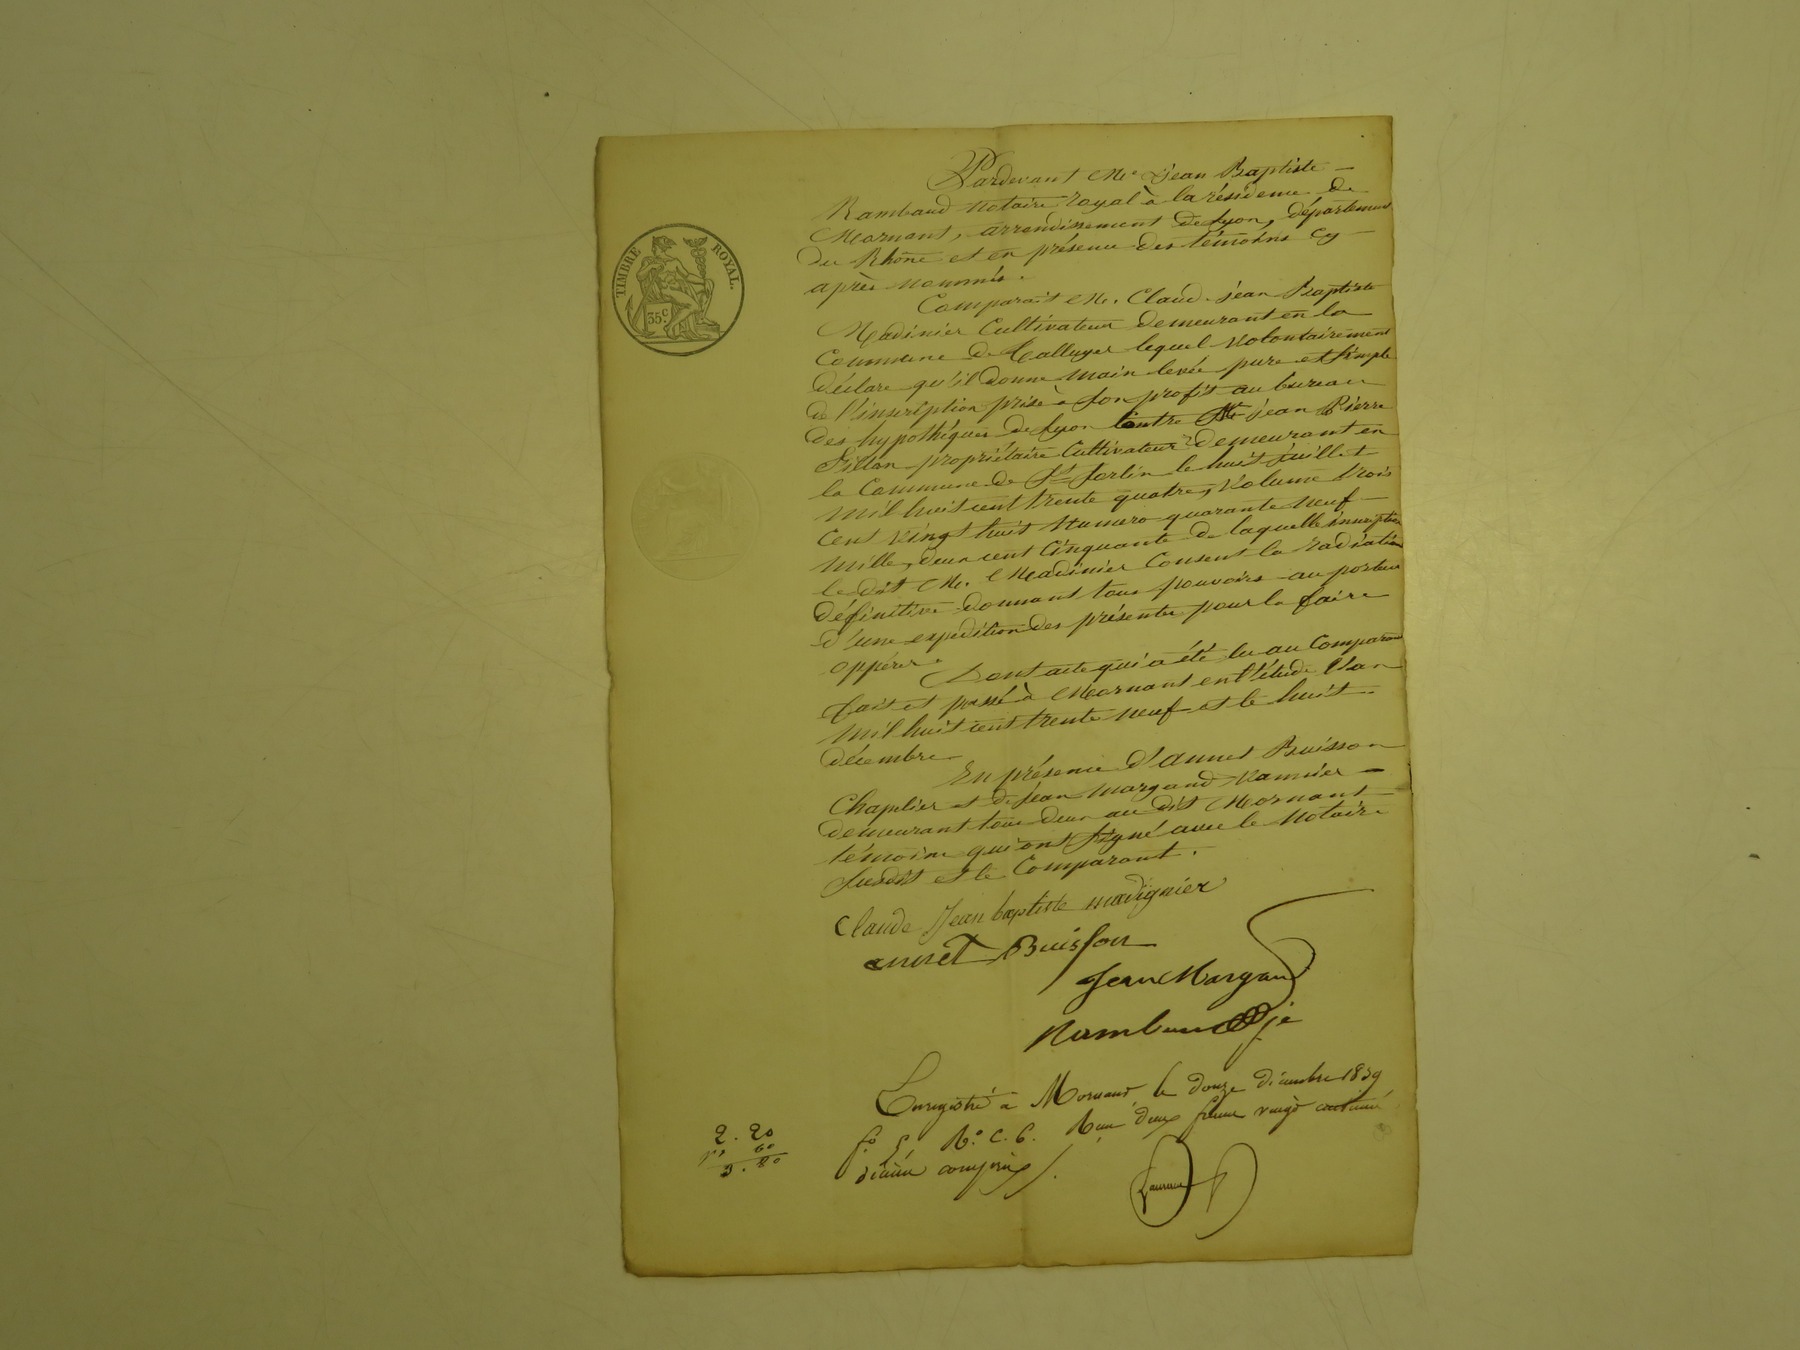 Pardevant Me Jean Baptiste
Rambaud Notaire royal à la résidence de
Mornant, arrondissement de Lyon, département
du Rhône et en présence des témoins cy
après nommés.
Comparait M. Claude Jean Baptiste
Madinier Cultivateur demeurant en la
Commune de Talluyer lequel volontairement
déclare qu'il donne main levée pure et simple
de l'inscription prise à son profit au bureau
des hypothèques de Lyon Contre Me Jean Pierre
propriétaire Cultivateur demeurant en
la Commune de St Sorlin le huit juillet
mil huit cent trente quatre, Volume trois
cent vingt huit Numero quarante neuf
mille, deux cent cinquante de laquelle inscription
le dit M. Madinier Consent la radiation
définitive donnant tous pouvoirs au porteur
d'une expédition des présentes pour la faire
oppérer.
Dont acte qui a été lu au Comparant
fait et passé à Mornant en l'étude l'an
mil huit cent trente neuf et le huit
décembre
En présence d'annet Buisson
Chapelier et de Jean Margand Vannier
demeurant tous deux au dit Mornant
témoins qui ont signé avec le Notaire
susdit et le Comparant.
TIMBRE ROYAL.
35 c.
Claude Jean baptiste madignier
annet Buisson
Jean Margand
Rambaud
Enregistré à Mornant, le douze décembre 1839
fo 5 Ro. C. 6. Reçu deux francs vingt centimes
dixième compris.
2.20
60
2.80